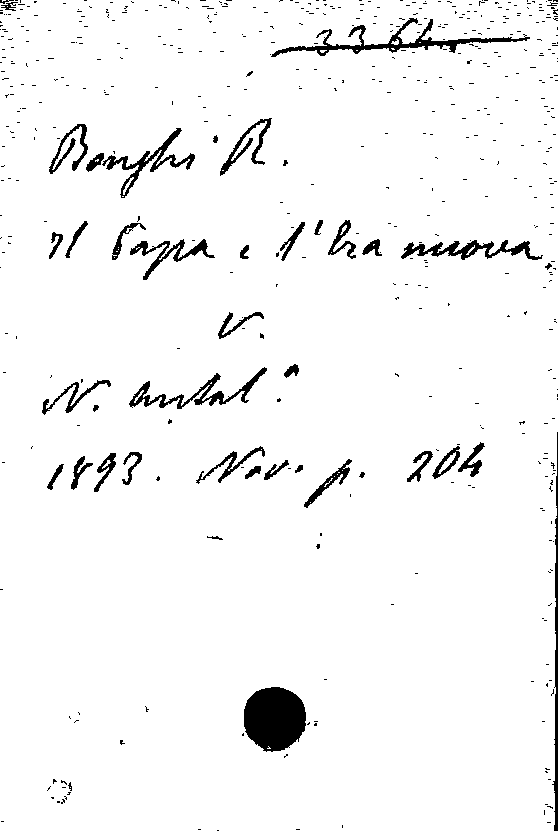 3364.
Bonghi R.
Il Papa e l'Era nuova.
V.
N. Antol.ª
1893. Nov. p. 204